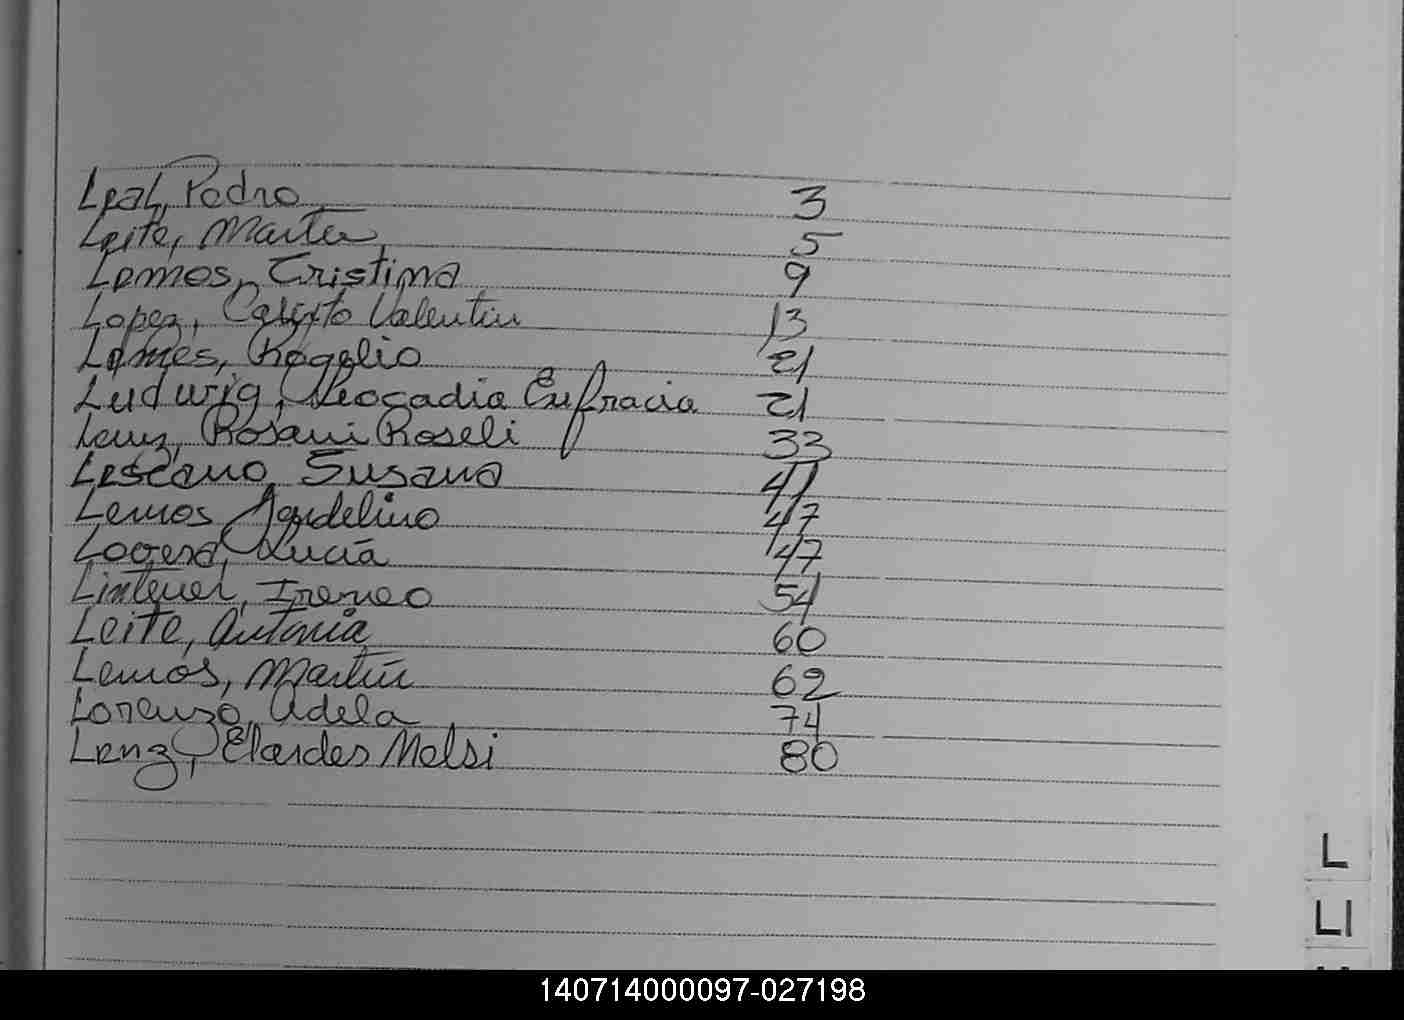 Leal, Pedro 3
Leite, Marta 5
Lemos, Cristina 9
Lopez, Calixto Valentin 13
Lemes, Rogelio 21
Ludwig, Leocadia Eufracia 21
Lenz, Rosani Roseli 33
Lescano, Susana 41
Lemos 47
Lovera, Lucía 47
Ireneo 54
Leite, Antonia 60
Lemos, Martín 62
Lorenzo, Adela 74
Lenz, Melsi 80
L
Ll
140714000097-027198